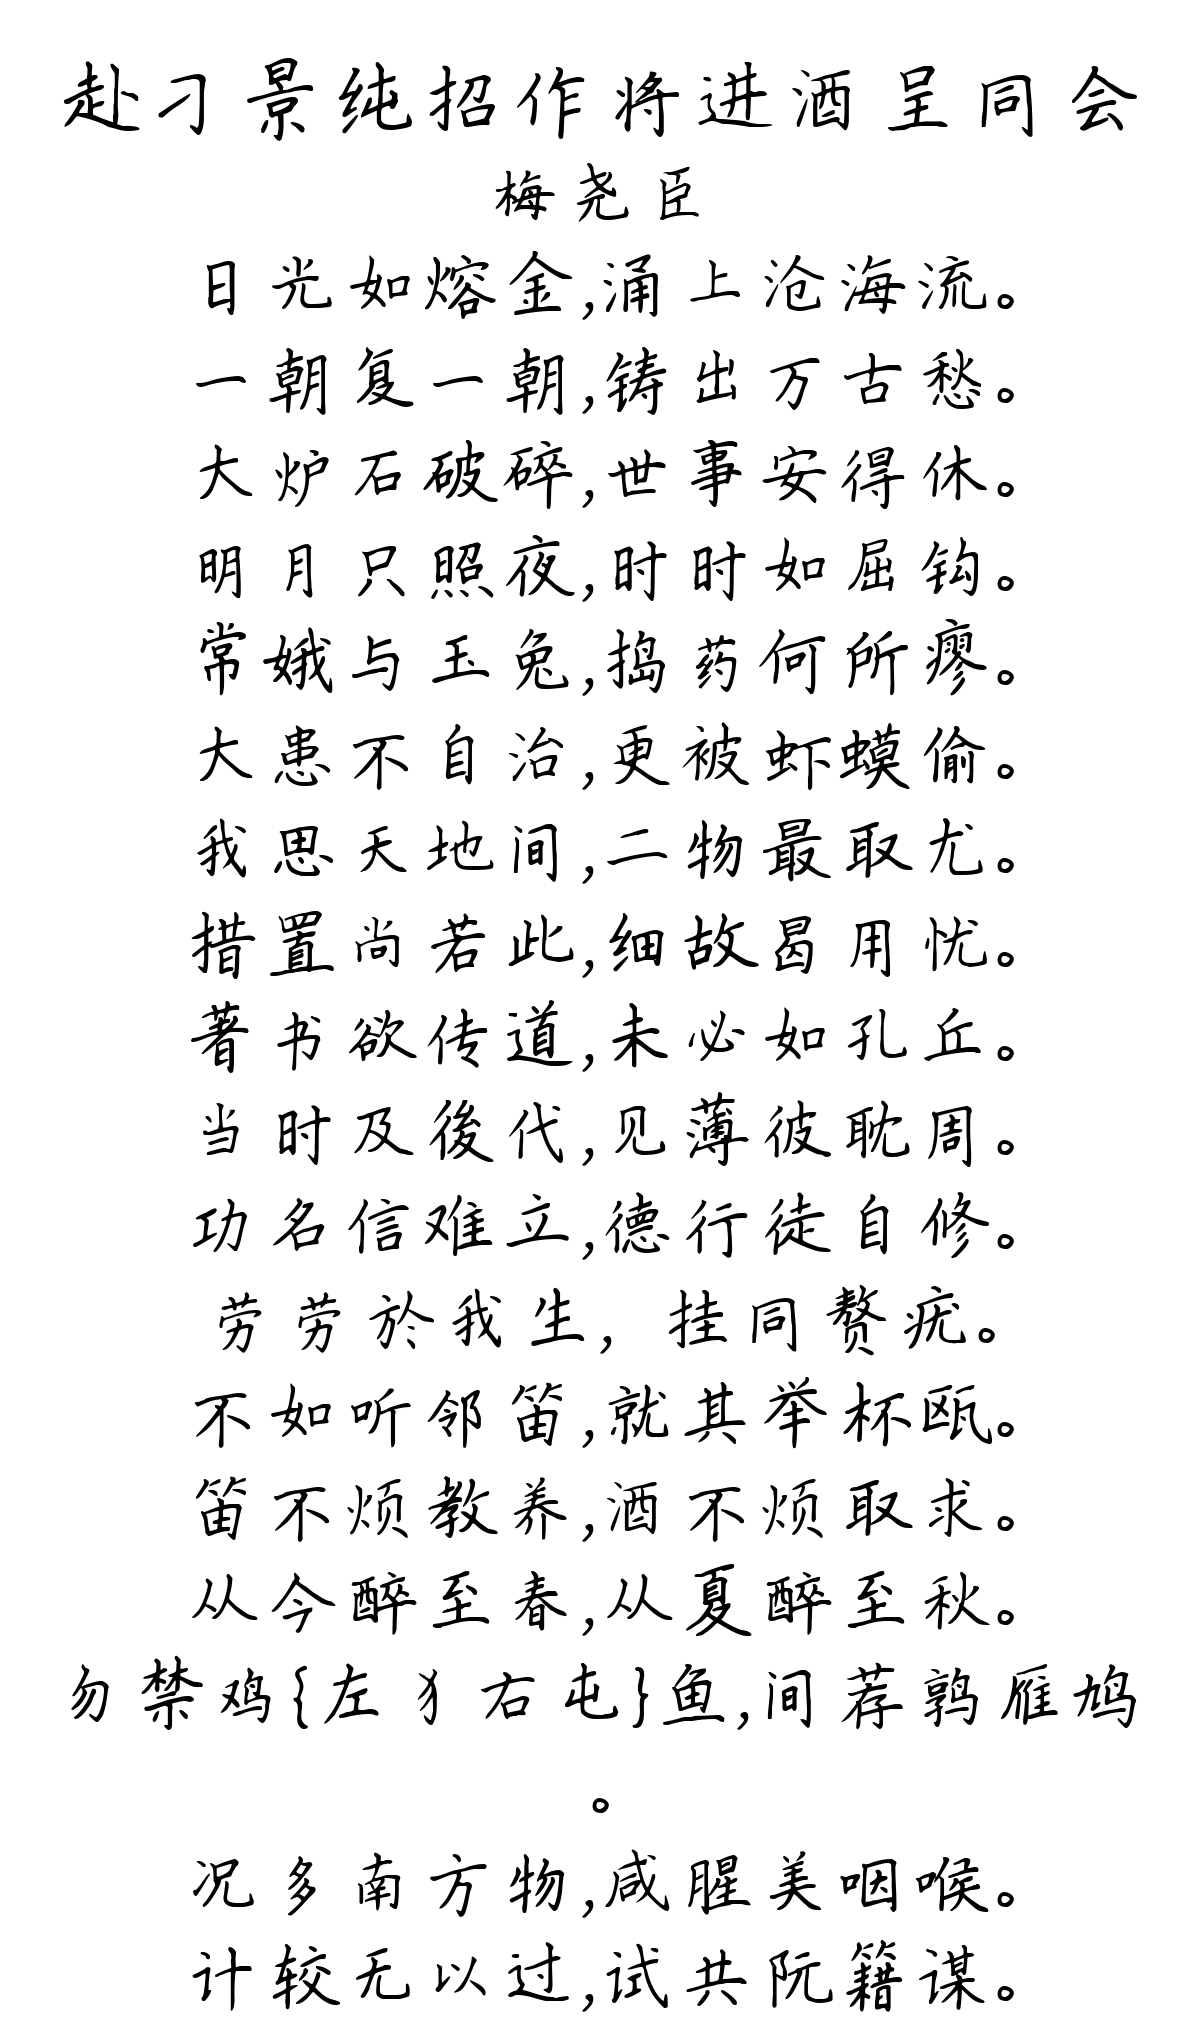 赴刁景纯招作将进酒呈同会
梅尧臣
日光如熔金,涌上沧海流。
一朝复一朝,铸出万古愁。
大炉石破碎,世事安得休。
明月只照夜,时时如屈钩。
常娥与玉兔,捣药何所瘳。
大患不自治,更被虾蟆偷。
我思天地间,二物最取尤。
措置尚若此,细故曷用忧。
著书欲传道,未必如孔丘。
当时及後代,见薄彼耽周。
功名信难立,德行徒自修。
劳劳於我生，挂同赘疣。
不如听邻笛,就其举杯瓯。
笛不烦教养,酒不烦取求。
从今醉至春,从夏醉至秋。
勿禁鸡{左犭右屯}鱼,间荐鹑雁鸠
。
况多南方物,咸腥美咽喉。
计较无以过,试共阮籍谋。